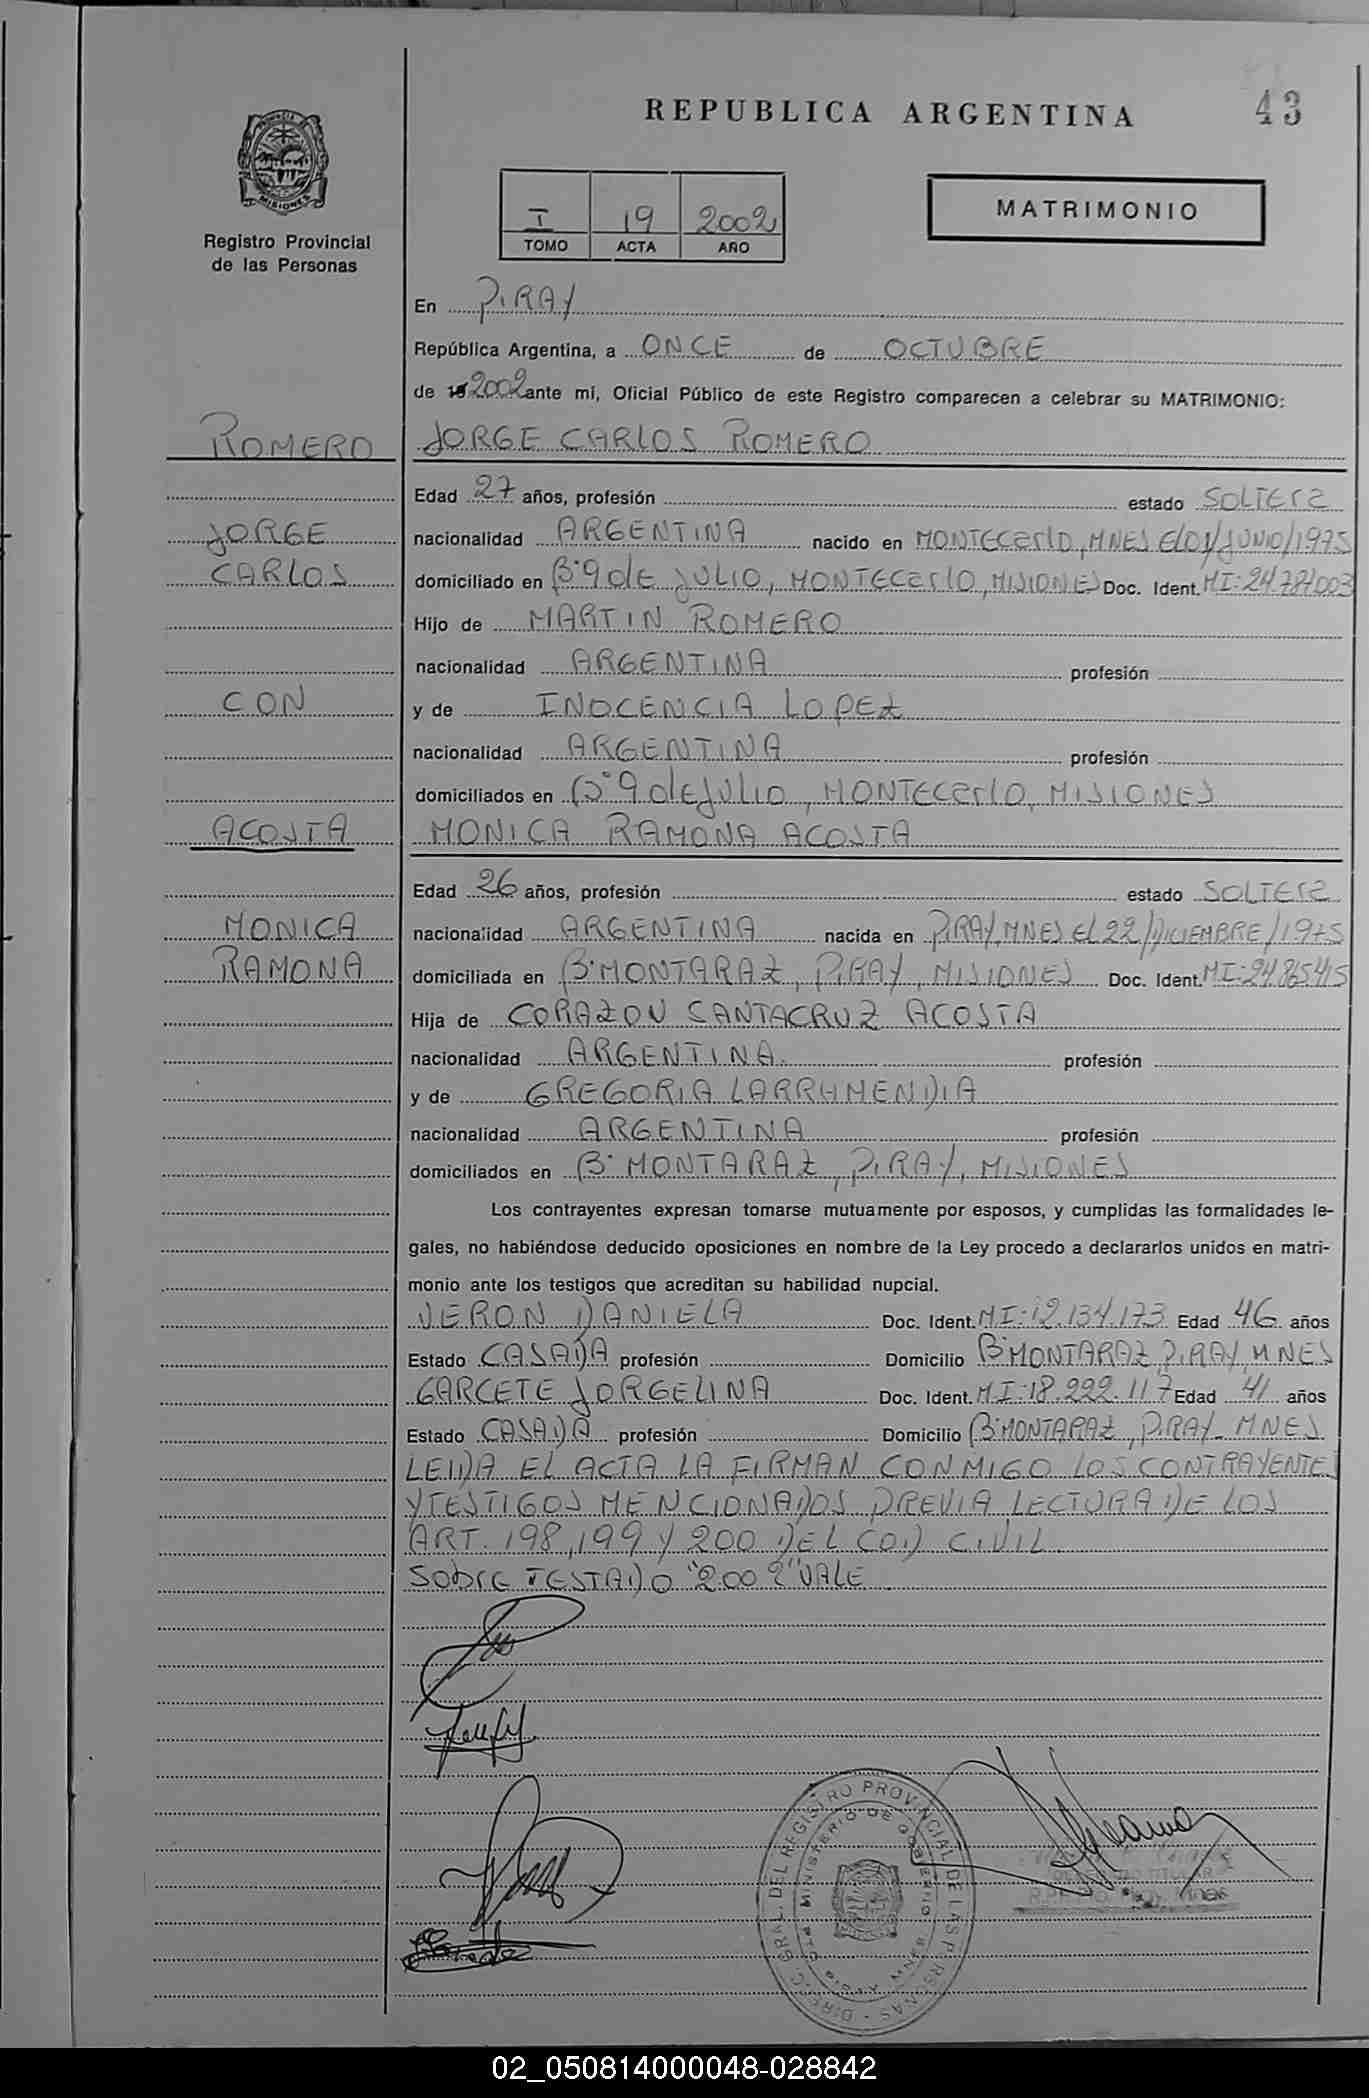 REPUBLICA ARGENTINA
43
Registro Provincial
de las Personas
I 19 2002
TOMO ACTA AÑO
MATRIMONIO
En PIRAY
República Argentina, a ONCE de OCTUBRE
de 2002 ante mi, Oficial Público de este Registro comparecen a celebrar su MATRIMONIO:
ROMERO JORGE CARLOS ROMERO
Edad 27 años, profesión estado SOLTERO
JORGE nacionalidad ARGENTINA nacido en MONTECARLO, MNES EL 01/JUNIO/1975
CARLOS domiciliado en B° 9 DE JULIO, MONTECARLO, MISIONES Doc. Ident. MI: 24.781003
Hijo de MARTIN ROMERO
nacionalidad ARGENTINA profesión
CON y de INOCENCIA LOPEZ
nacionalidad ARGENTINA profesión
domiciliados en B° 9 DE JULIO, MONTECARLO, MISIONES
ACOSTA MONICA RAMONA ACOSTA
Edad 26 años, profesión estado SOLTERA
MONICA nacionalidad ARGENTINA nacida en PIRAY, MNES EL 22/DICIEMBRE/1975
RAMONA domiciliada en B° MONTARAZ, PIRAY, MISIONES Doc. Ident. MI: 24.865415
Hija de CORAZON SANTACRUZ ACOSTA
nacionalidad ARGENTINA. profesión
y de GREGORIA LARRUMENDIA
nacionalidad ARGENTINA profesión
domiciliados en B° MONTARAZ, PIRAY, MISIONES
Los contrayentes expresan tomarse mutuamente por esposos, y cumplidas las formalidades le-
gales, no habiéndose deducido oposiciones en nombre de la Ley procedo a declararlos unidos en matri-
monio ante los testigos que acreditan su habilidad nupcial.
VERON DANIELA Doc. Ident. MI: 12.134.173 Edad 46 años
Estado CASADA profesión Domicilio B° MONTARAZ, PIRAY, MNES
GARCETE JORGELINA Doc. Ident. M.I: 18.222.117 Edad 41 años
Estado CASADA profesión Domicilio B° MONTARAZ, PIRAY_ MNES
LEIDA EL ACTA LA FIRMAN CONMIGO LOS CONTRAYENTES
Y TESTIGOS MENCIONADOS PREVIA LECTURA DE LOS
ART. 198, 199 Y 200 DEL COD CIVIL
SOBRE TESTADO "2002" VALE
DIREC. GRAL. DEL REGISTRO PROVINCIAL DE LAS PERSONAS
MINISTERIO DE GOBIERNO
02_050814000048-028842